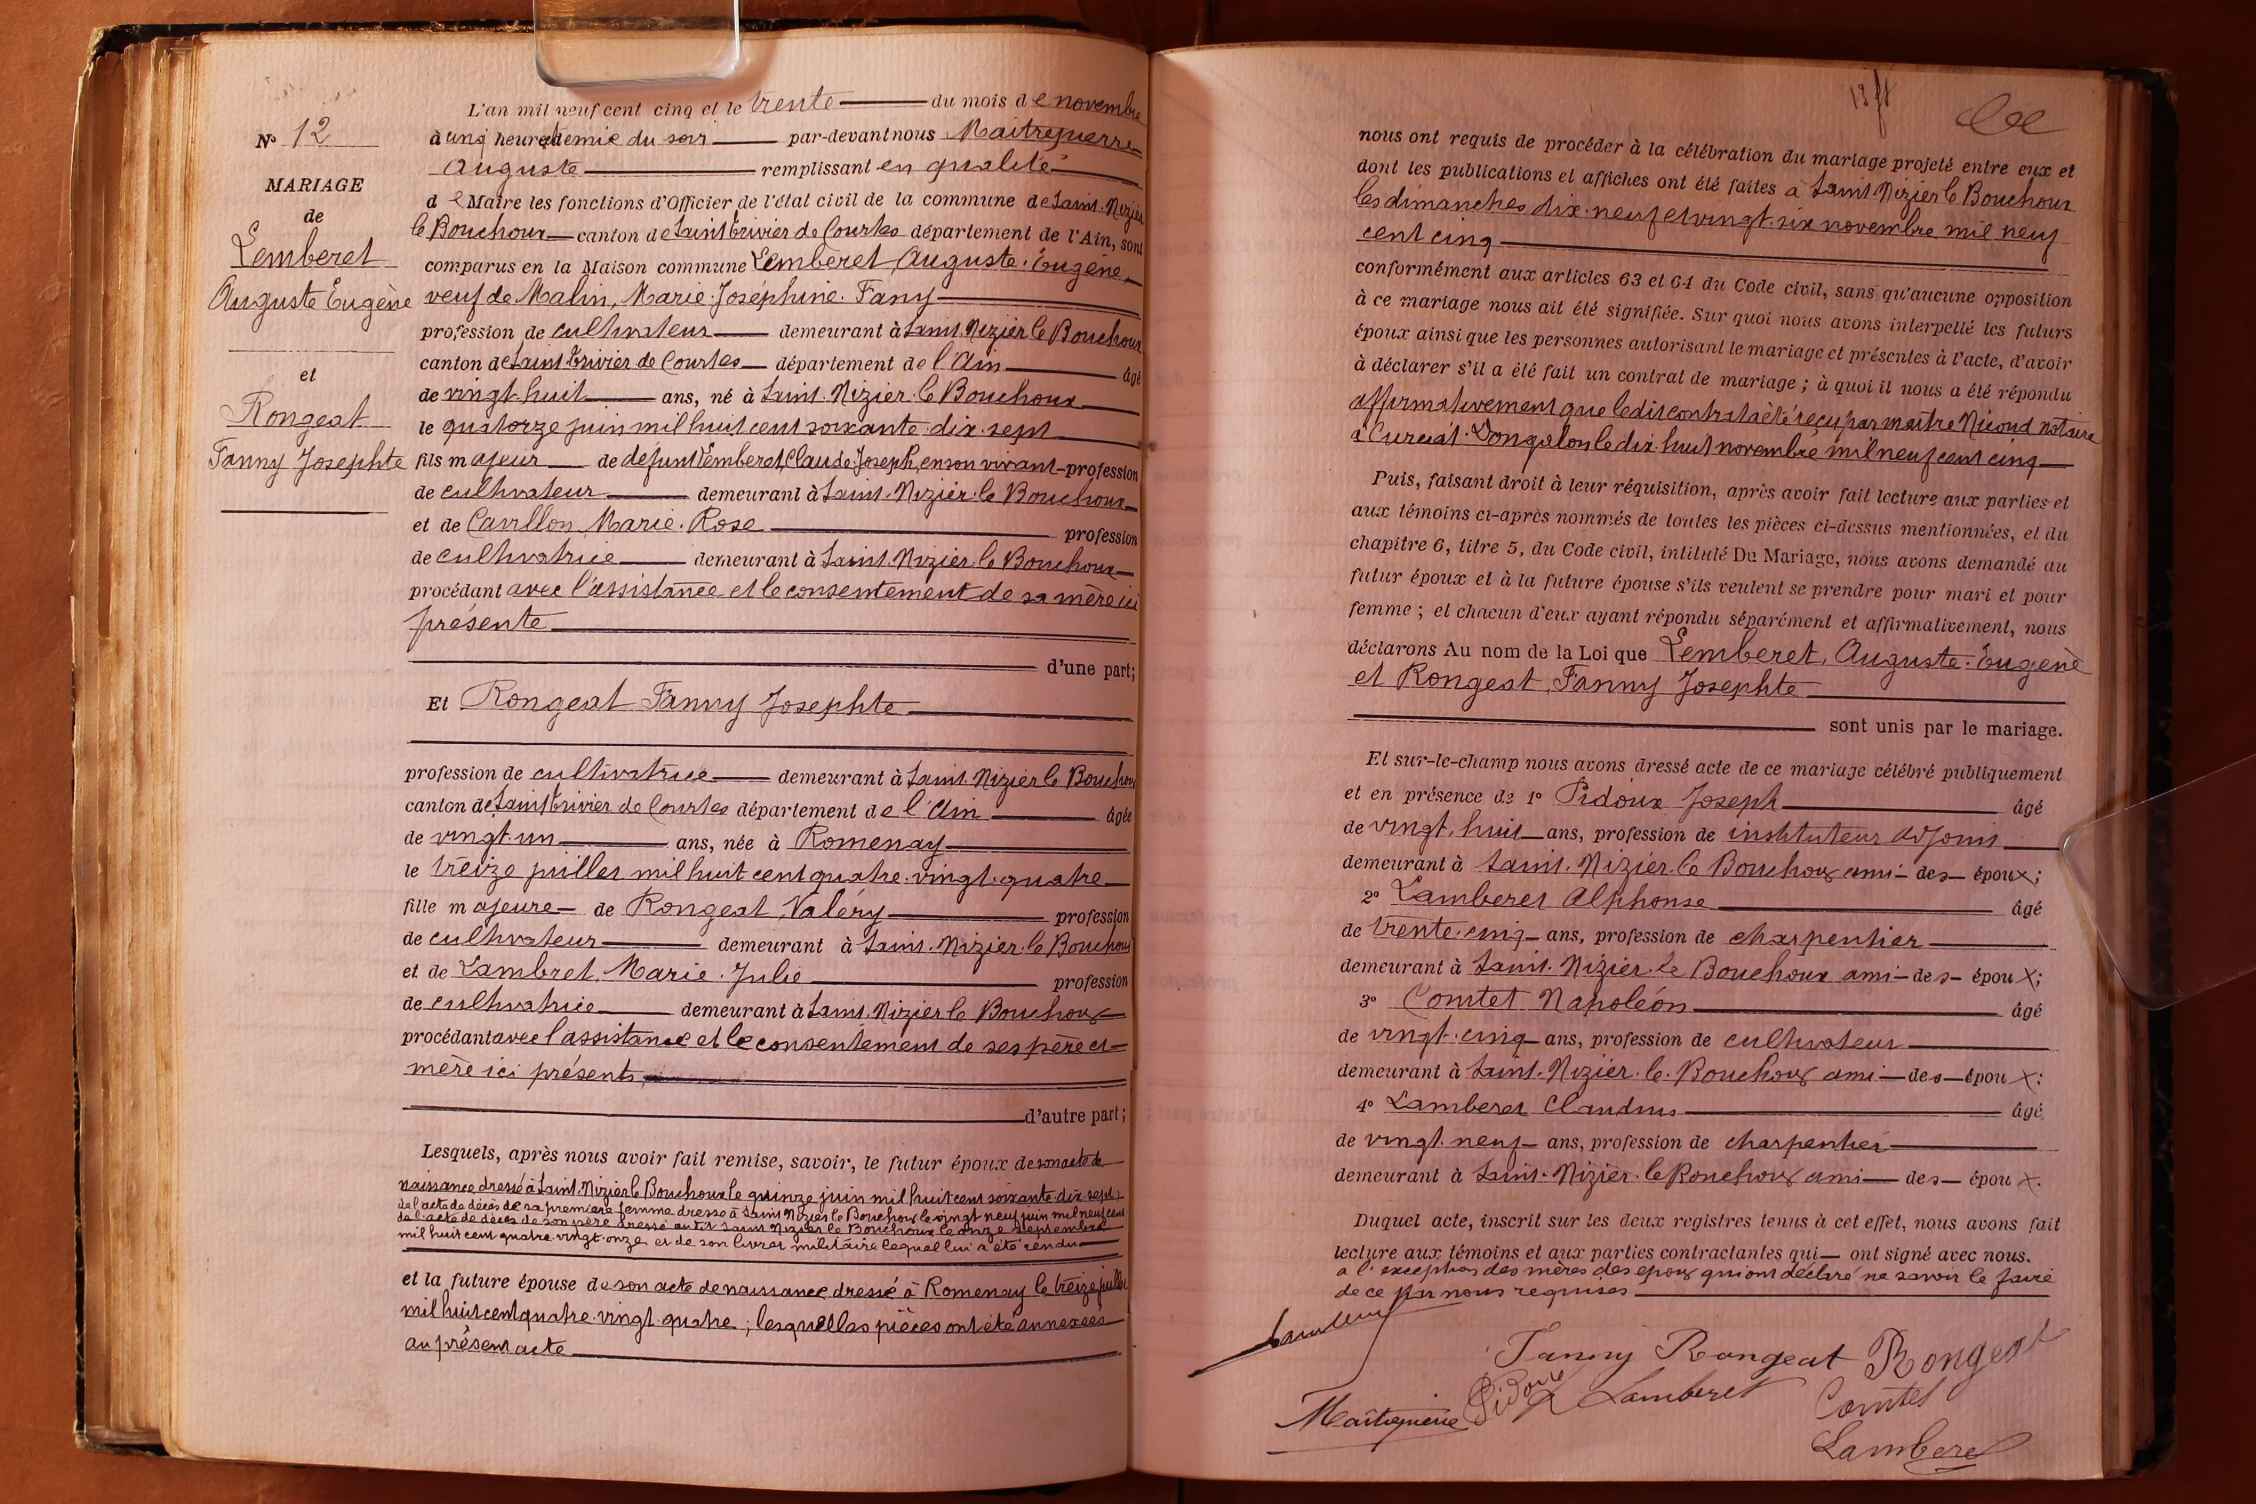 L'an mil neuf cent cinq et le trente du mois de novembre
à cinq heures et demie du soir par-devant nous Maitreguerre
Auguste remplissant en qualité
de Maire les fonctions d'Officier de l'état civil de la commune de Saint-Nizier
le Bouchoux canton de Saint Trivier de Courtes département de l'Ain, sont
comparus en la Maison commune Lemberet, Auguste-Eugène
veuf de Malin, Marie-Joséphine-Fany
profession de cultivateur demeurant à Saint-Nizier le Bouchoux
canton de Saint Trivier de Courtes département de l'Ain âgé
de vingt-huit ans, né à Saint-Nizier-le Bouchoux
le quatorze juin mil huit cent soixante-dix-sept
fils majeur de défunt Lemberet, Claude-Joseph, en son vivant profession
de cultivateur demeurant à Saint-Nizier-le Bouchoux
et de Marie-Rose profession
de cultivatrice demeurant à Saint-Nizier-le Bouchoux
procédant avec l'assistance et le consentement de sa mère ici
présente
d'une part;
Et Rongeat Fanny Josephte
profession de cultivatrice demeurant à Saint-Nizier le Bouchoux
canton de Saint Trivier de Courtes département de l'Ain âgée
de vingt-un ans, née à Romenay
le treize juillet mil huit cent quatre-vingt-quatre
fille majeure de Rongeat, Valéry profession
de cultivateur demeurant à Saint-Nizier-le Bouchoux
et de Lambret, Marie-Julie profession
de cultivatrice demeurant à Saint-Nizier le Bouchoux
procédant avec l'assistance et le consentement de ses père et
mère ici présents
d'autre part;
Lesquels, après nous avoir fait remise, savoir, le futur époux de son acte de
naissance dressé à Saint-Nizier le Bouchoux le quinze juin mil huit cent soixante-dix-sept,
de l'acte de décès de sa première femme dressé à Saint Nizier le Bouchoux le vingt neuf juin mil neuf cent
de l'acte de décès de son père dressé au dit Saint Nizier le Bouchoux le onze septembre
mil huit cent quatre-vingt-onze et de son livret militaire lequel lui a été rendu
et la future épouse de son acte de naissance dressé à Romenay le treize juillet
mil huit cent quatre-vingt-quatre; lesquelles pièces ont été annexées
au présent acte
N° 12
MARIAGE
de
Lemberet
Auguste Eugène
et
Rongeat
Fanny Josephte
nous ont requis de procéder à la célébration du mariage projeté entre eux et
dont les publications et affiches ont été faites à Saint-Nizier le Bouchoux
les dimanches dix-neuf et vingt-six novembre mil neuf
cent cinq
conformément aux articles 63 et 64 du Code civil, sans qu'aucune opposition
à ce mariage nous ait été signifiée. Sur quoi nous avons interpellé les futurs
époux ainsi que les personnes autorisant le mariage et présentes à l'acte, d'avoir
à déclarer s'il a été fait un contrat de mariage; à quoi il nous a été répondu
affirmativement que ledit contrat a été reçu par maître Nicoud notaire
à Curciat-Dongalon le dix-huit novembre mil neuf cent cinq
Puis, faisant droit à leur réquisition, après avoir fait lecture aux parties et
aux témoins ci-après nommés de toutes les pièces ci-dessus mentionnées, et du
chapitre 6, titre 5, du Code civil, intitulé Du Mariage, nous avons demandé au
futur époux et à la future épouse s'ils veulent se prendre pour mari et pour
femme; et chacun d'eux ayant répondu séparément et affirmativement, nous
déclarons Au nom de la Loi que Lemberet, Auguste-Eugène
et Rongeat, Fanny Josephte
sont unis par le mariage.
Et sur-le-champ nous avons dressé acte de ce mariage célébré publiquement
et en présence de 1° Pidoux Joseph âgé
de vingt-huit ans, profession de instituteur adjoint
demeurant à Saint-Nizier-le Bouchoux ami des époux;
2° Lamberet Alphonse âgé
de trente-cinq ans, profession de charpentier
demeurant à Saint-Nizier-le Bouchoux ami des époux;
3° Comtet Napoléon âgé
de vingt-cinq ans, profession de cultivateur
demeurant à Saint-Nizier-le-Bouchoux ami des époux;
4° Lamberet Claudius âgé
de vingt-neuf ans, profession de charpentier
demeurant à Saint-Nizier-le Bouchoux ami des époux.
Duquel acte, inscrit sur les deux registres tenus à cet effet, nous avons fait
lecture aux témoins et aux parties contractantes qui ont signé avec nous.
à l'exception des mères des époux qui ont déclaré ne savoir le faire
de ce par nous requises
Fanny Rongeat Rongeat
Pidoux Lamberet Comtet
Maitreguerre
Lamberet